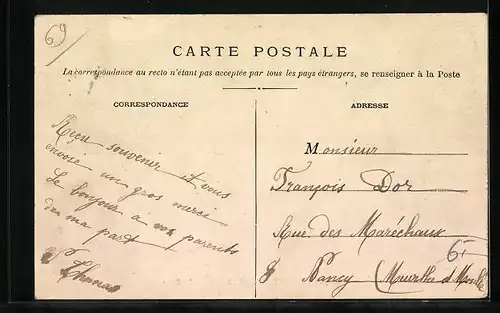 69
CARTE POSTALE
La correspondance au recto n'étant pas acceptée par tous les pays étrangers, se renseigner à la Poste
CORRESPONDANCE
Reçu souvenir et vous
envoie un gros merci
Le bonjour à vos parents
de ma part
ADRESSE
Monsieur
François Dor
Rue des Maréchaux
Nancy (Meurthe et Moselle
6-